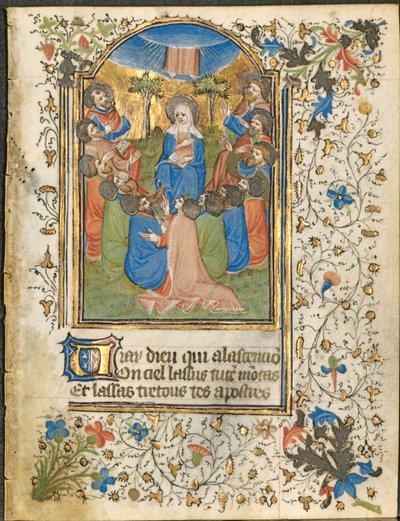 Uray dieu qui alastencio
On ciel lassus tute motas
Et lassas tretous tes apostres